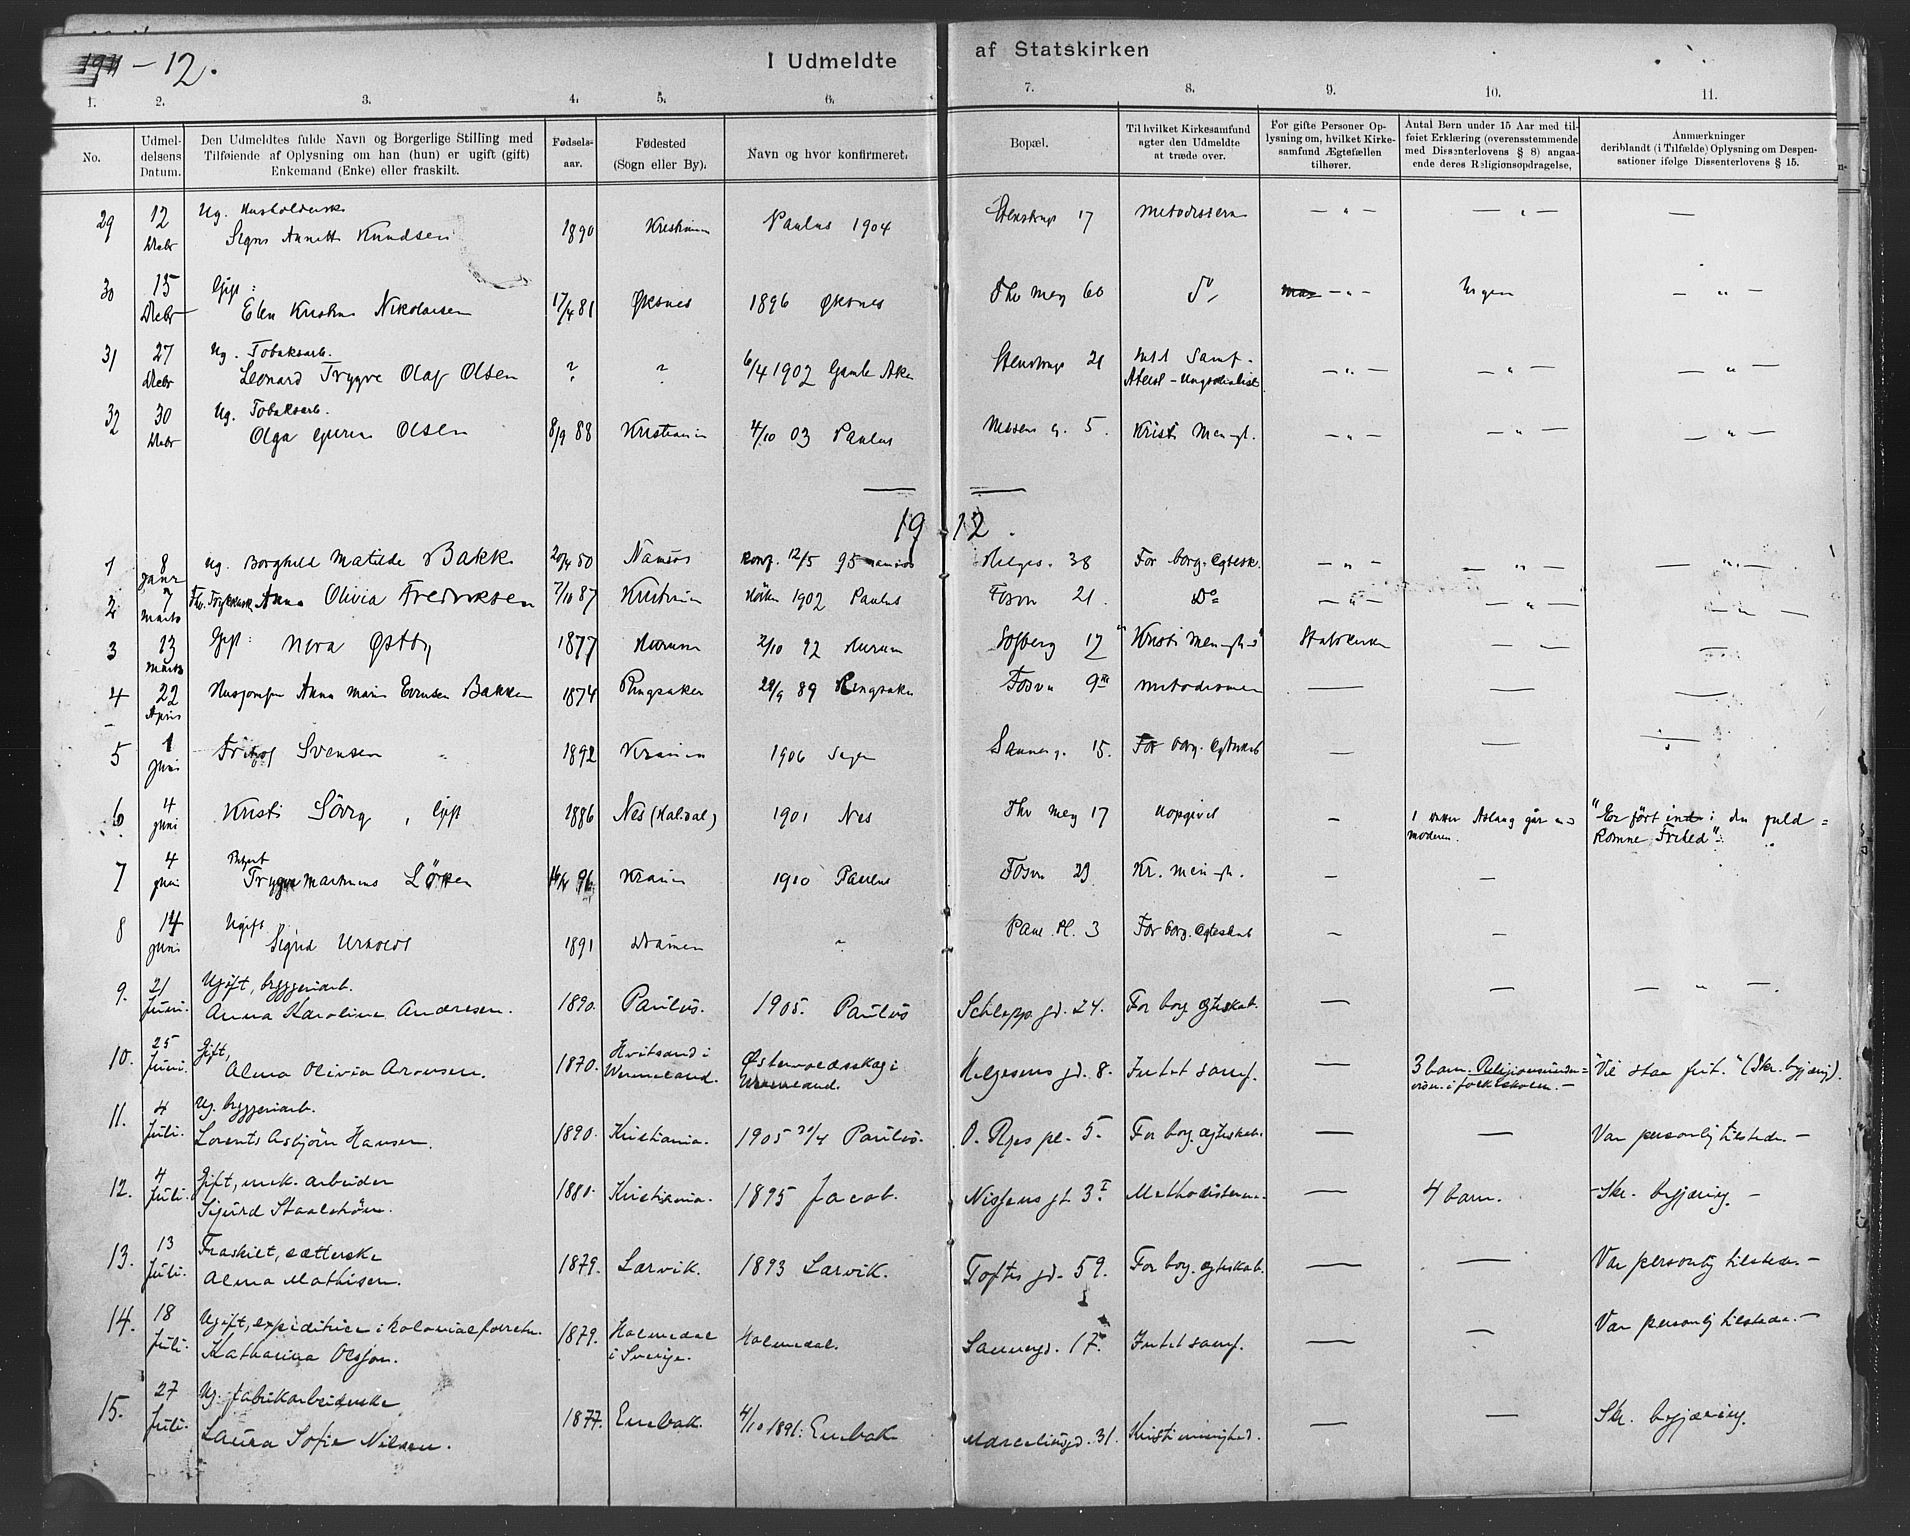 1911-12.
I Udmeldte af Statskirken
1. 2. 3. 4. 5. 6. 7. 8. 9. 10. 11.
No.
Udmel-
delsens
Datum.
Den Udmeldtes fulde Navn og Borgerlige Stilling med
Tilføiende af Oplysning om han (hun) er ugift (gift)
Enkemand (Enke) eller fraskilt.
Fødsels-
aar.
Fødested
(Sogn eller By).
Navn og hvor konfirmeret.
Bopæl.
Til hvilket Kirkesamfund
agter den Udmeldte
at træde over.
For gifte Personer Op-
lysning om, hvilket Kirke-
samfund Ægtefællen
tilhører.
Antal Børn under 15 Aar med til-
føiet Erklæring (overensstemmende
med Dissenterlovens § 8) angaa-
ende deres Religionsopdragelse.
Anmærkninger
deriblandt (i Tilfælde) Oplysning om Despen-
sationer ifølge Dissenterlovens § 15.
29 12 Ug. Husholderske
Decbr Signe Annette Knudsen 1890 Kristiania Paulus 1904 Stenstrup 17 Metodistern — " — — " — —
30 15 Gift:
Decbr Elen Kristine Nikolaisen 17/4 81 Øksnes 1896 Øksnes Thv Mey 60 Do — " — Ingen — " —
31 27 Ug. Tobaksarb.
Decbr Leonard Trygve Olaf Olsen ? ? 6/4 1902 Gamle Aker Stenstrup 21 Intet Samf. — " — — " — — " —
32 30 Ug. Tobaksarb.
Decbr Olga Olsen 8/9 88 Kristiania 4/10 03 Paulus 5. Kristi Menigh. — " — — " — — " —
1912.
1 8 Janr Ug. Borghild Matilde Bakk Namsos Konf. 12/5 95 Namsos Helges. 38 For borg. Egtesk. — " — — " — — " —
2 7 Marts Anna Olivia Fredriksen 7/10 87 Kristiania 1902 Paulus Fosvn 21. Do — " — — " — — " —
3 13 Marts Gift: Nora Østby 1877 Hurum 2/10 92 Hurum Sofberg 17 Kristi Menigh. Statskirken — — —
4 22 April Anna Marie Evensen Bakken 1874 Ringsaker 29/9 89 Ringsaker Fosvn 9 Metodisterne — — —
5 1 Juni Fritjof Svensen 1892 Krania 1906 Sannerg. 15. For borg. Egteskab — — —
6 4 Juni Kristi Sörg, Gift 1886 Nes (Hal.dal) 1901 Nes Thv Mey 17 Uopgivet — 1 datter Aslaug går
moderen. "Er ført ind i den guld=
Romne Frihed".
7 4 Juni Trygve Martinius Löken 96 Krania 1910 Paulus Fosvn 29 Kr. menigh. — —
8 14 Ugift
Juni Sigrid 1891 Dramen " Paul. Pl. 3 For borg. Egteskab — —
9. 21 Ugift, bryggeriarb.
Juni. Anna Karoline Andresen. 1890. Paulus. 1905. Paulus Schleppgd. 24. For borg. egteskab. — — — " —.
10. 25 Gift,
Juni. Alma Olivia Aronsen. 1870. Hvitsand i
Wermeland. Østervoldsskog i
Wermeland. Helgesens gd. 8. Intet samf. — 3 barn. Religionsunder=
visn. i folkeskolen. — "Vil staa frit." (Skr. begjæring).
11. 4 Ug. bryggeriarb.
Juli. Lorents Asbjørn Hansen. 1890. Kristiania. 1905 30/4 Paulus. O. Ryes pl. 5. For borg. egteskab. — — Var personlig tilstede. —
12. 4 Gift, mek. arbeider
Juli. Sigurd Staalström. 1880. Kristiania. 1895 Jacob. Nissens gt. 3 I Methodisterne. — 4 barn. — Skr. begjæring. —
13. 13 Fraskilt, sætterske
Juli. Alma Mathisen. 1879. Larvik. 1893 Larvik. Toftes gd. 59. For borg. egteskab. — — Var personlig tilstede. —
14. 18 Ugift, expeditrice i kolonialforretn.
Juli. Katharina Olsson. 1879. Holmedal
i Sverige. Holmedal. Sannergd. 17. Intet samf. — — Var personlig tilstede. —
15. 27 Ug. fabrikarbeiderske
Juli. Laura Sofie Nilsen. 1877. Enebak. 4/10 1891. Enebak Marselinsgd. 31. Kristi menighed. — — Skr. begjæring.